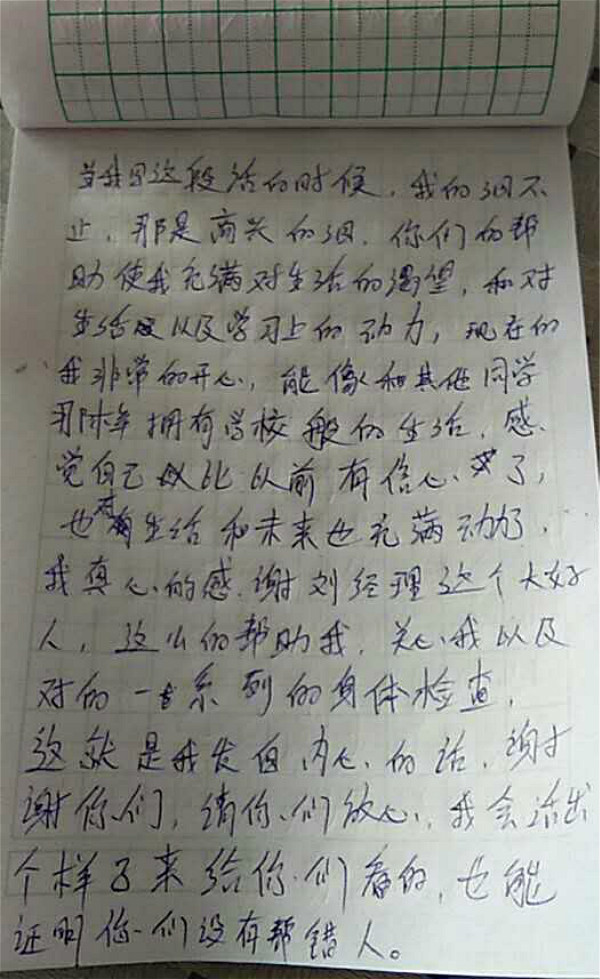 当我写这段话的时候，我的泪不
止，那是高兴的泪。你们的帮
助使我充满对生活的渴望，和对
生活以及学习上的动力，现在的
我非常的开心，能像和其他同学
那样拥有学校般的生活，感
觉自己比以前有信心了，
也对生活和未来也充满动力了，
我真心的感谢刘经理这个大好
人，这么的帮助我，关心我以及
对的一系列的身体检查，
这就是我发自内心的话，谢
谢你们，请你们放心，我会活出
个样子来给你们看的，也能
证明你们没有帮错人。